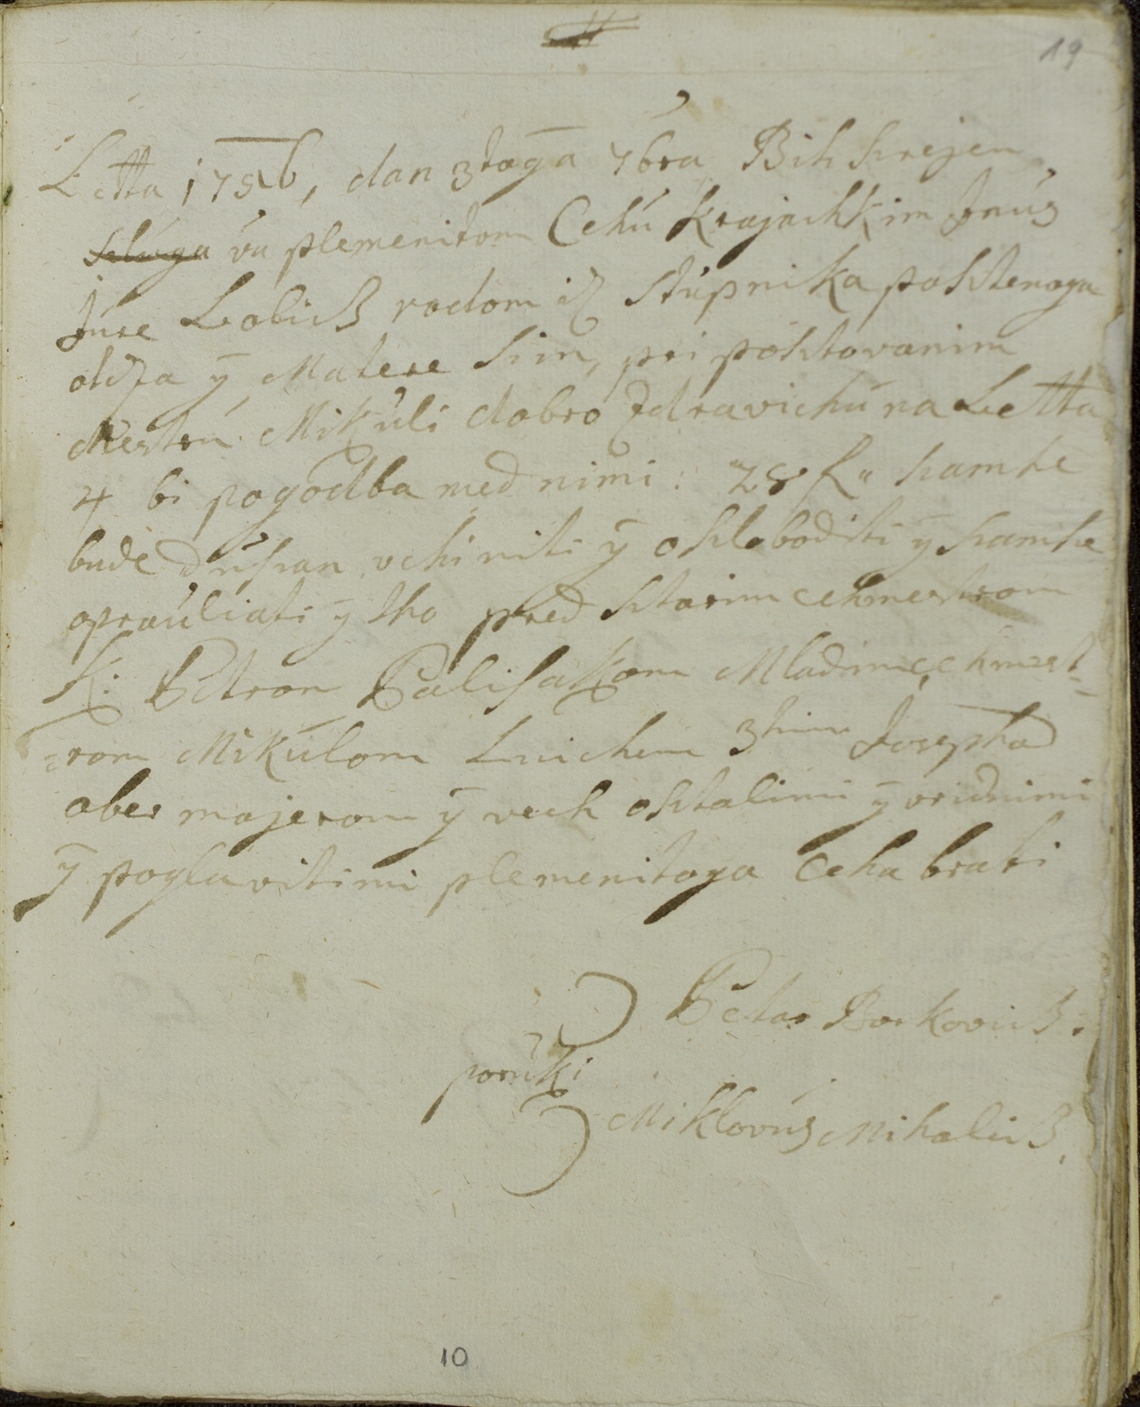 19
Letta 1756, dan 3toga 7bra Bih Szrejen
szluga vu plemenitom Cehu Krajachkim Inús
Jure Lobich rodom iz Stupnika poshtenoga
otcza ÿ Matere szin, pri poshtovanim
Mestru Mikuli dobro Zdravichú na Letta
4 bi pogodba med nimi: 28 f" szamsze
bude dusan vchiniti ÿ oszloboditi ÿ szamsze
opraúliati ÿ tho pred Starim cehmestrom
K: Petrom Palisakom Mladim cehmest=
=rom Mikúlom Lnichem 3him Josepha
aber majerom ÿ vech osztalimi ÿ vridnimi
ÿ poglavitimi plemenitoga Ceha brati
Petar Borkovich.
porúki
Miklovús Mihalich.
10